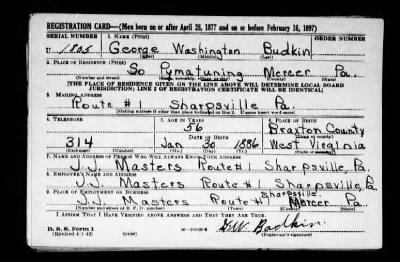 REGISTRATION CARD—(Men born on or after April 28, 1877 and on or before February 16, 1897)
SERIAL NUMBER 1. NAME (Print) ORDER NUMBER
U 1805 George Washington Budkin
(First) (Middle) (Last)
2. PLACE OF RESIDENCE (Print)
So Pymatuning Mercer Pa.
(Number and street) (Town, township, village, or city) (County) (State)
[THE PLACE OF RESIDENCE GIVEN ON THE LINE ABOVE WILL DETERMINE LOCAL BOARD
JURISDICTION; LINE 2 OF REGISTRATION CERTIFICATE WILL BE IDENTICAL]
3. MAILING ADDRESS
Route #1 Sharpsville Pa.
[Mailing address if other than place indicated on line 2. If same insert word same]
4. TELEPHONE 5. AGE IN YEARS 6. PLACE OF BIRTH
56 Braxton County
DATE OF BIRTH (Town or county)
314 Jan 30 1886 West Virginia
(Exchange) (Number) (Mo.) (Day) (Yr.) (State or country)
7. NAME AND ADDRESS OF PERSON WHO WILL ALWAYS KNOW YOUR ADDRESS
J.J. Masters Route #1 Sharpsville, Pa.
8. EMPLOYER'S NAME AND ADDRESS
J.J. Masters Route #1 Sharpsville, Pa.
9. PLACE OF EMPLOYMENT OR BUSINESS Sharpsville.
J.J. Masters Route #1 Mercer Pa.
(Number and street or R. F. D. number) (Town) (County) (State)
I AFFIRM THAT I HAVE VERIFIED ABOVE ANSWERS AND THAT THEY ARE TRUE.
D. S. S. Form 1
(Revised 4-1-42) (over) G.W. Badkin.
(Registrant's signature)